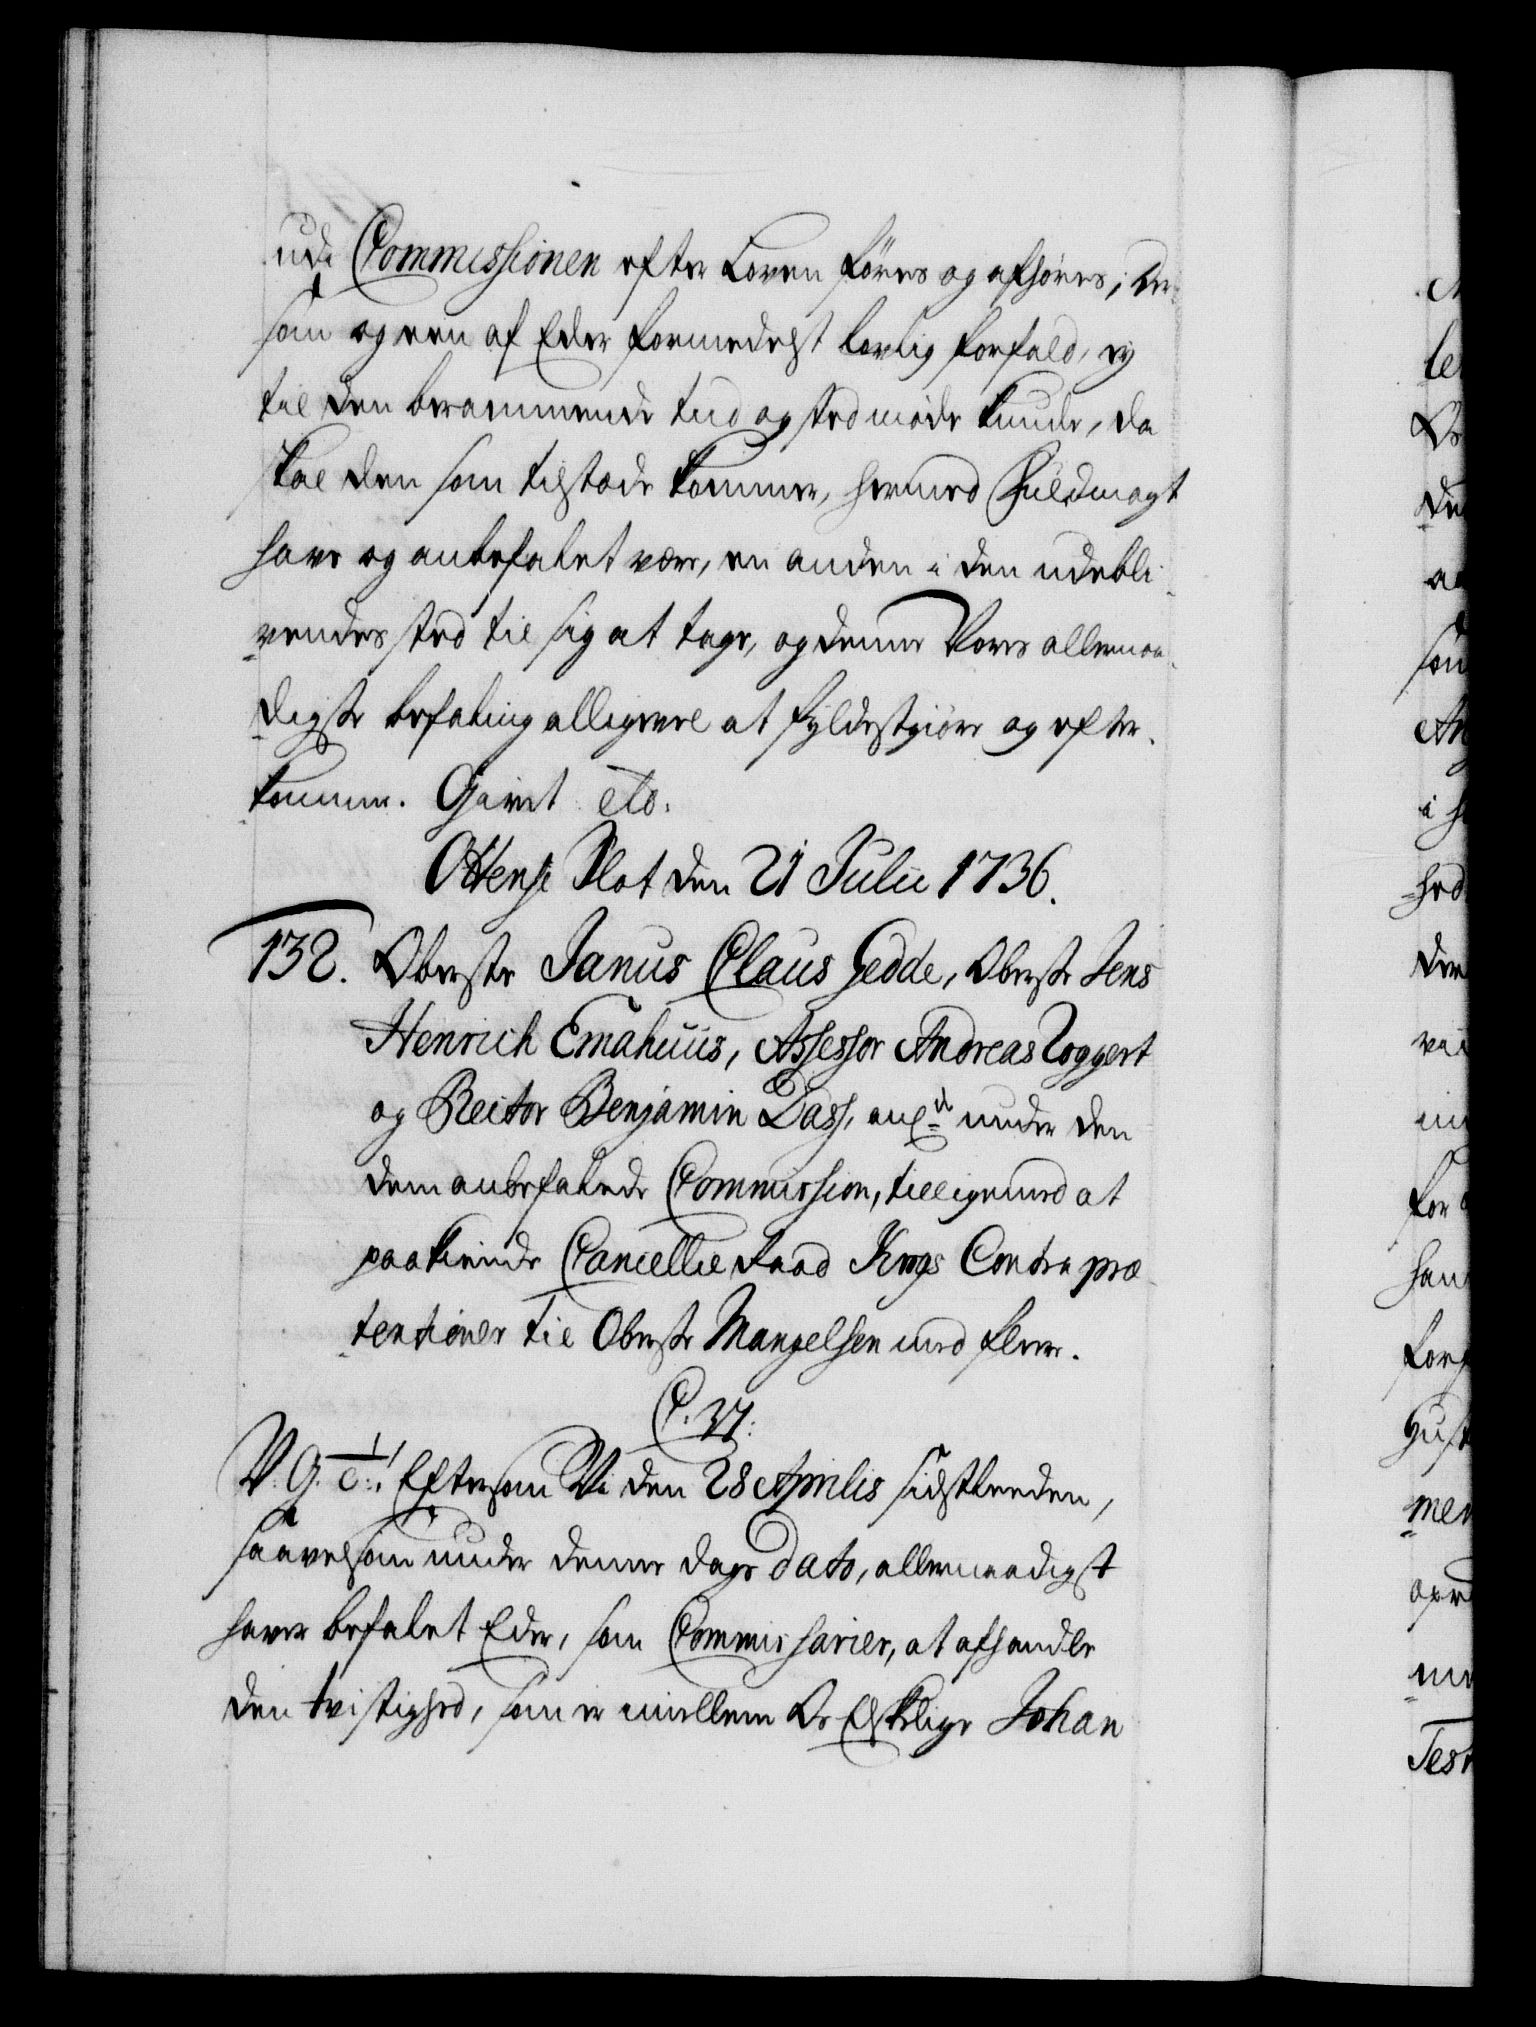 udi Commissionen efter Loven føres og afhøres; Der
som og een af Eder formedelst lovlig forfald, ey
til den berammende tid og sted møde kunde, da
skal den som tilstæde kommer, hermed Fuldmagt
have og anbefalet være, en anden i den udebli-
vendes sted til sig at tage, og denne Vores allernaa-
digste befaling alligevel at fyldestgiøre og efter-
komme. Givet etc.
Ottense Slot den 21 Julii 1736.
132. Oberste Janus Claus Gedde, Oberste Jens
Henrich Emahuus, Assessor Andreas Roggert
og Rector Benjamin Dass, anl: under den
dem anbefalede Commission, tilligemed at
paakiende Cancellie Raad Krogs Contra præ-
tentioner til Oberste Mangelsen med flere.
V. G. T. Eftersom Vi den 28 Aprilis sidstleeden,
saavelsom under denne dags dato, allernaadigst
haver befalet Eder, som Commissarier, at afhandle
den tvistighed, som er imellem Os Elskelige Johan